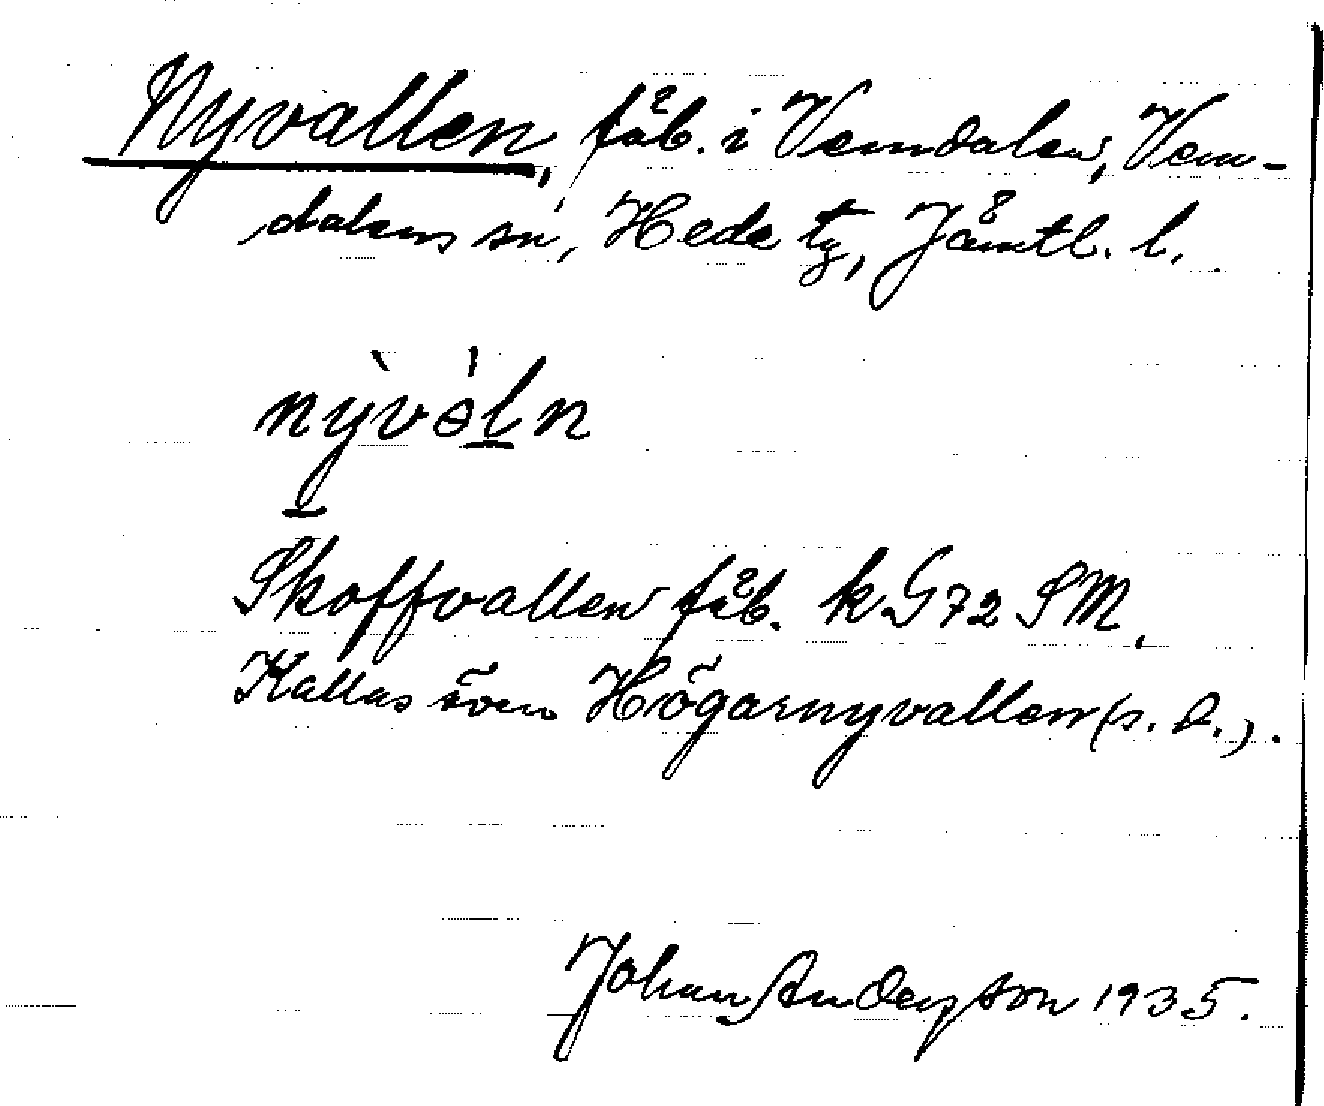 Nyvallen, fäb. i Vemdalen, Vem-
dalens sn, Hede tg, Jämtl. l.
nỳ̱vɵ́ḻn
Skoffvallen fäb. k G72 SM.
Kallas även Högarnyvallen (s. d.).
Johan Anderson 1935.